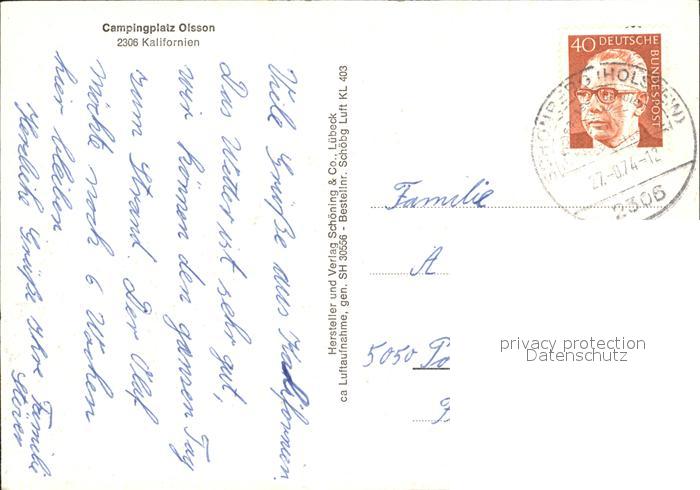 Campingplatz Olsson
2306 Kalifornien
Viele Grüße aus Kalifornien.
Das Wetter ist sehr gut,
wir können den ganzen Tag
zum Strand. Der Olaf
möchte noch 6 Wochen
hier bleiben
Herzliche Grüße Ihre Familie
Hersteller und Verlag Schöning & Co., Lübeck
ca Luftaufnahme, gen. SH 30556 - Bestellnr. Schöbg Luft KL 403
40 DEUTSCHE
BUNDESPOST
SCHÖNBERG (HOLSTEIN)
2306
Familie
A
5050 Po
privacy protection
Datenschutz